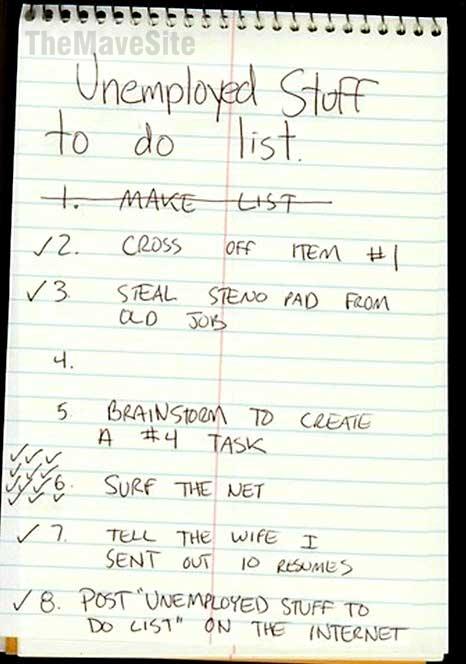 TheMaveSite
Unemployed Stuff
to do list.
1. MAKE LIST
✓2. CROSS OFF ITEM #1
✓3. STEAL STENO PAD FROM
OLD JOB
4.
5. BRAINSTORM TO CREATE
A #4 TASK
✓✓✓
✓✓✓✓
✓✓✓✓6. SURF THE NET
✓✓✓✓
✓7. TELL THE WIFE I
SENT OUT 10 RESUMES
✓8. POST "UNEMPLOYED STUFF TO
DO LIST" ON THE INTERNET